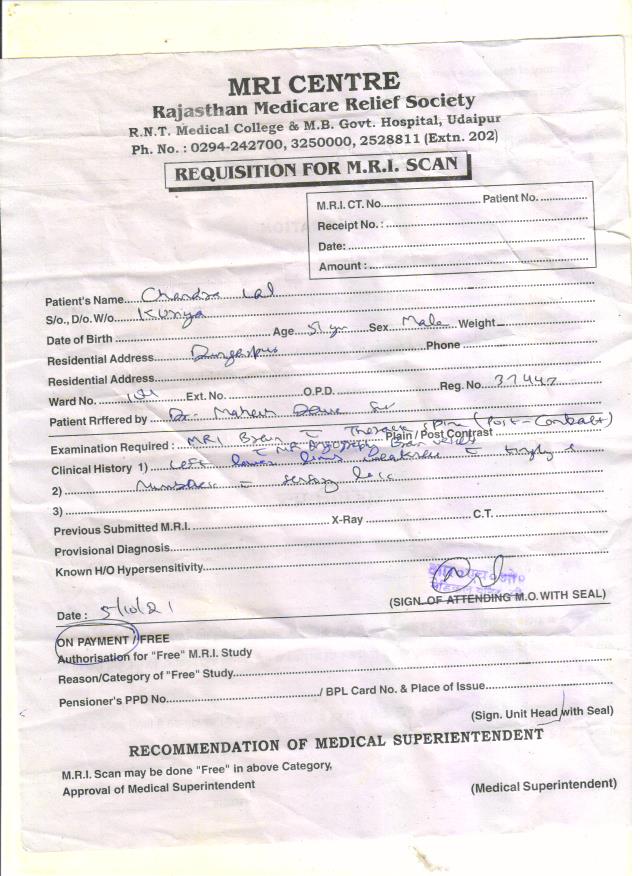 MRI CENTRE
Rajasthan Medicare Relief Society
R.N.T. Medical College & M.B. Govt. Hospital, Udaipur
Ph. No. : 0294-242700, 3250000, 2528811 (Extn. 202)
REQUISITION FOR M.R.I. SCAN
M.R.I.CT. No. Patient No.
Receipt No. :
Date:
Amount :
Patient's Name Chandra Lal
S/o., D/o. W/o.
Date of Birth Age 51 yr Sex Male Weight
Residential Address Phone
Residential Address
Ward No. Ext. No. O.P.D. Reg. No. 37447
Patient Rrffered by Dr. Mahesh Dave Sir
Examination Required : MRI Brain Plain / Post Contrast spine (Post-Contrast)
Clinical History 1) Left lower limb weakness tingling
2) Numbness
3)
Previous Submitted M.R.I. X-Ray C.T.
Provisional Diagnosis
Known H/O Hypersensitivity
Date : 5/10/21 (SIGN. OF ATTENDING M.O. WITH SEAL)
ON PAYMENT / FREE
Authorisation for "Free" M.R.I. Study
Reason/Category of "Free" Study
Pensioner's PPD No. / BPL Card No. & Place of Issue
(Sign. Unit Head with Seal)
RECOMMENDATION OF MEDICAL SUPERIENTENDENT
M.R.I. Scan may be done "Free" in above Category,
Approval of Medical Superintendent (Medical Superintendent)